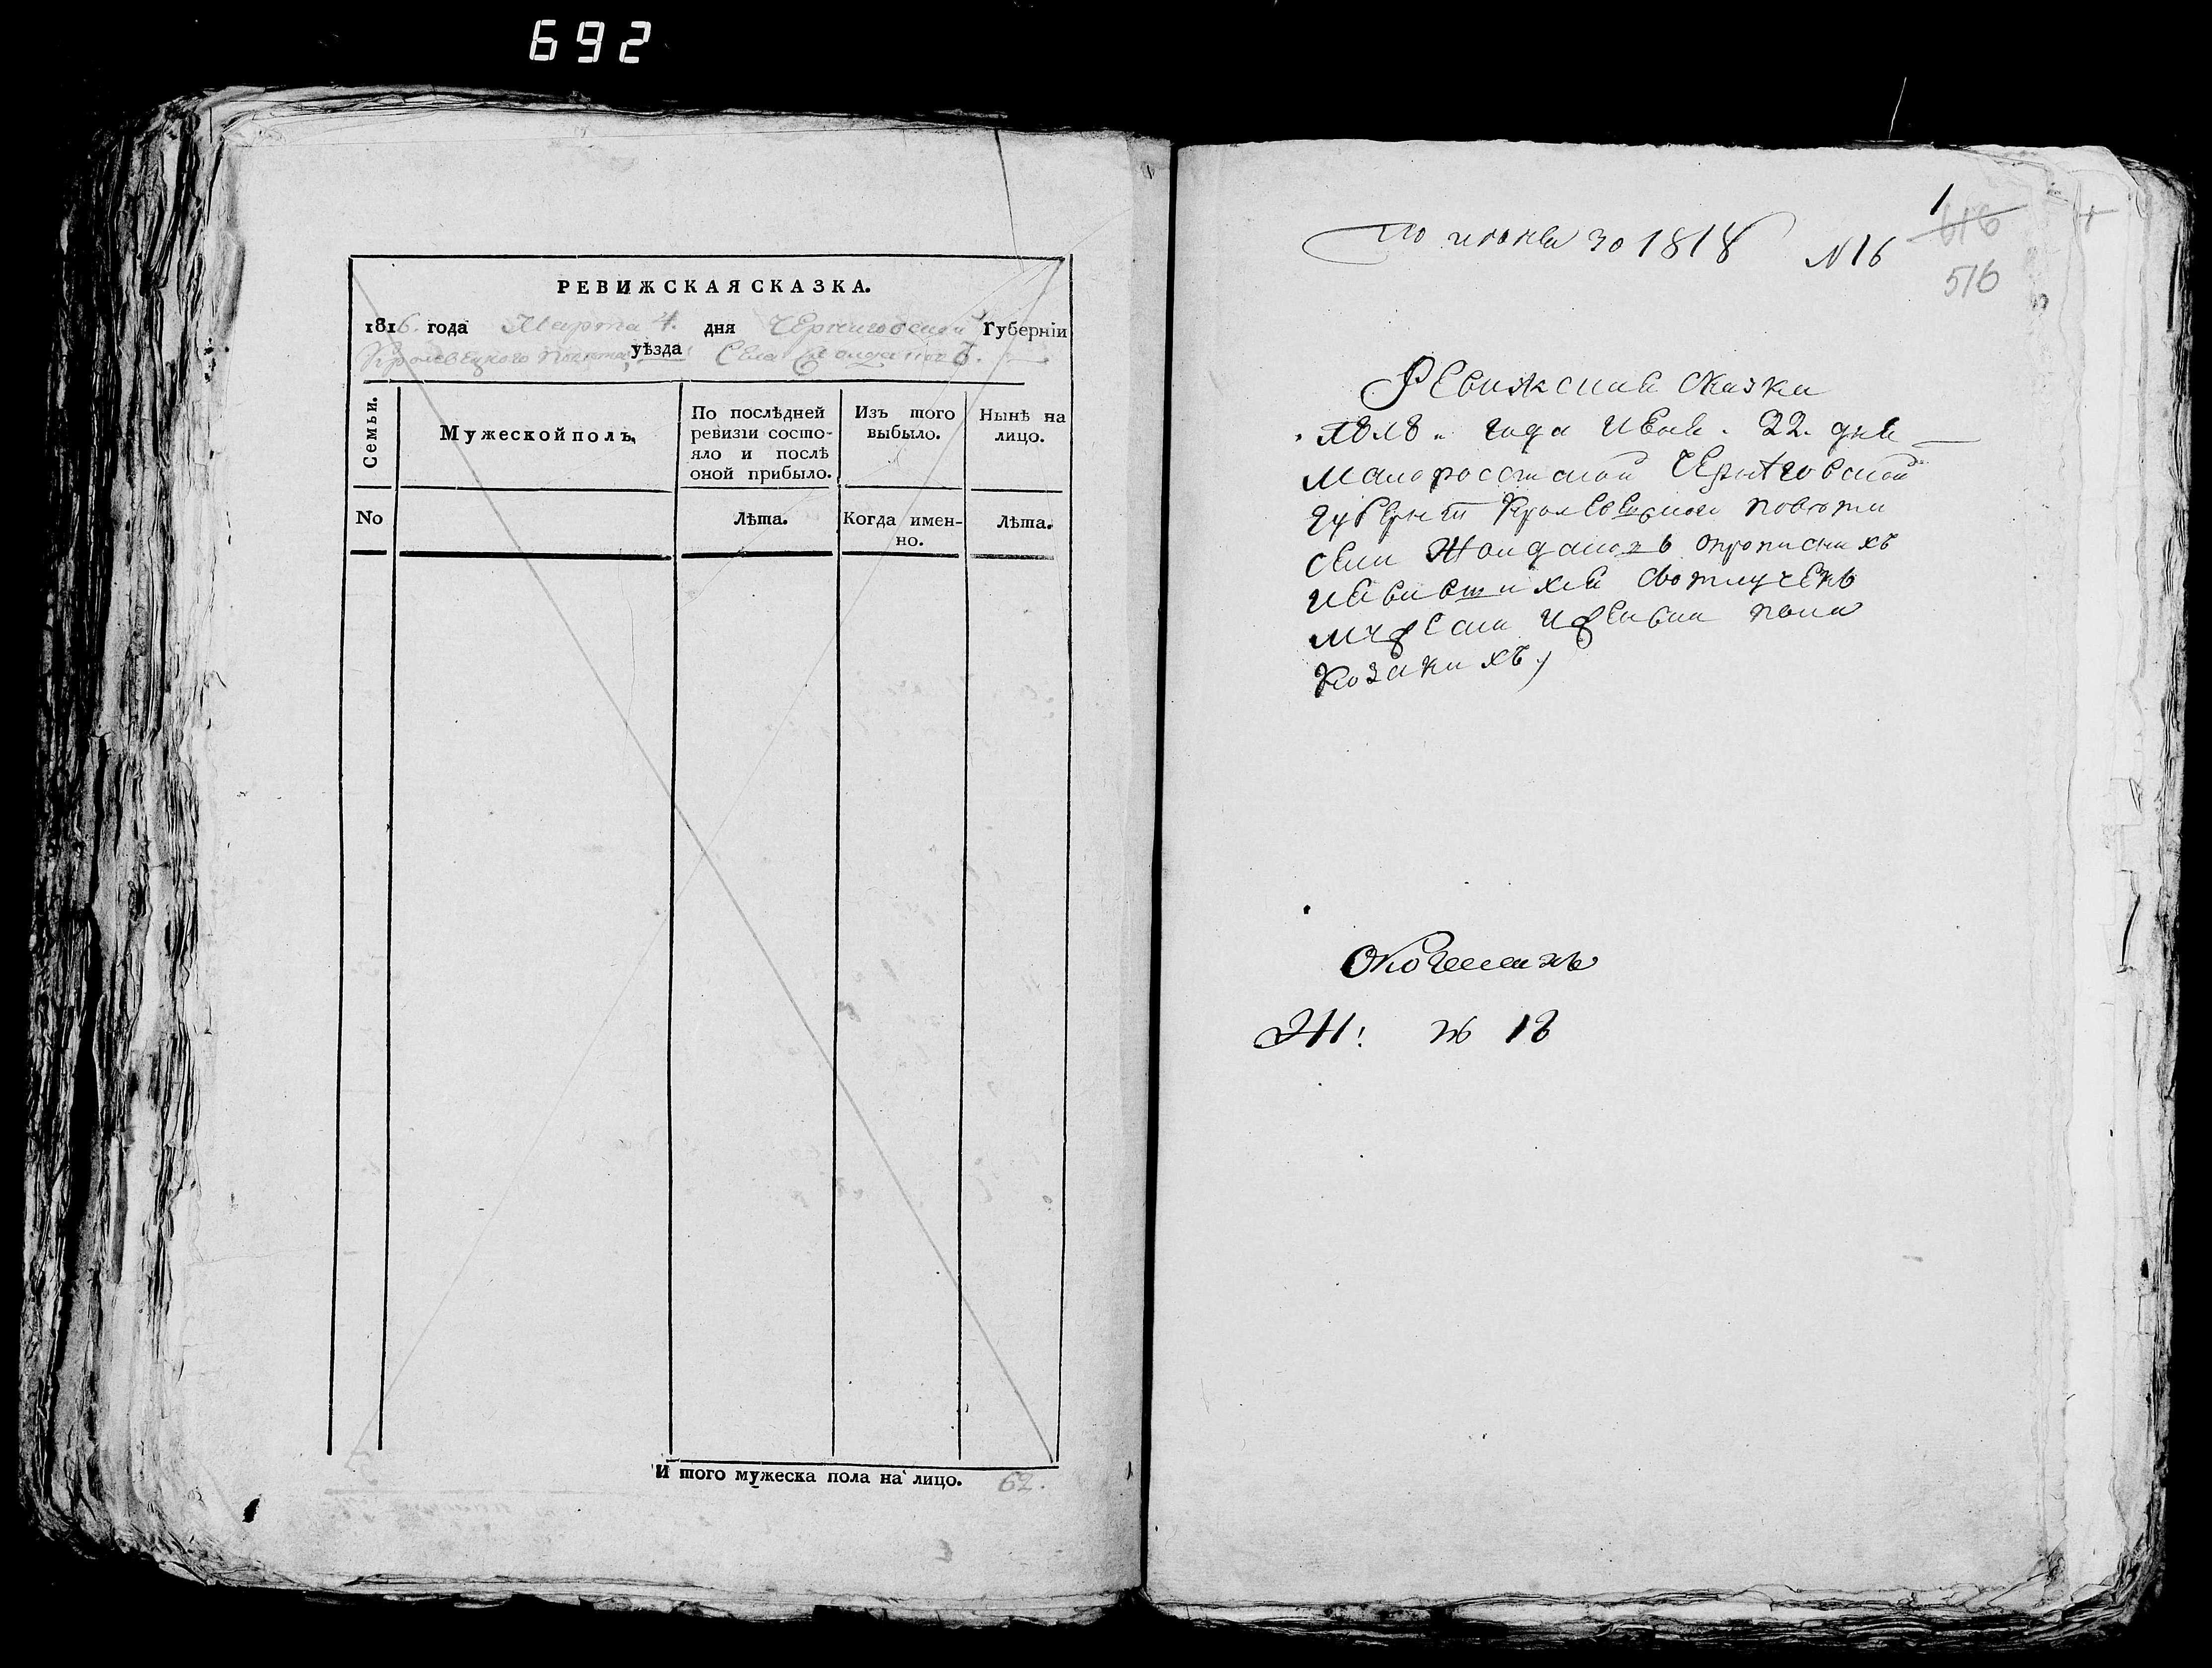 692
РЕВИЖСКАЯ СКАЗКА.
1816. года Марта 4. дня Черниговской Губерніи
Кролевецкого Повѣта уѣзда Села
Семьи.
Мужеской полъ.
По послѣдней ревизіи состо-
яло и послѣ
оной прибыло.
Изъ того
выбыло.
Нынѣ на
лицо.
No
Лѣта.
Когда имен-
но.
Лѣта.
И того мужеска пола на лицо. 62.
1
616
По июня 30 1818 N 16
516
Ревижская сказка
1818 года июня 22. дня
Малоросійской Черниговской
губерніи Кролевецкого повѣта
села о прописныхъ
мужеска и женска пола
козакахъ
О козакахъ
М: Ж 18